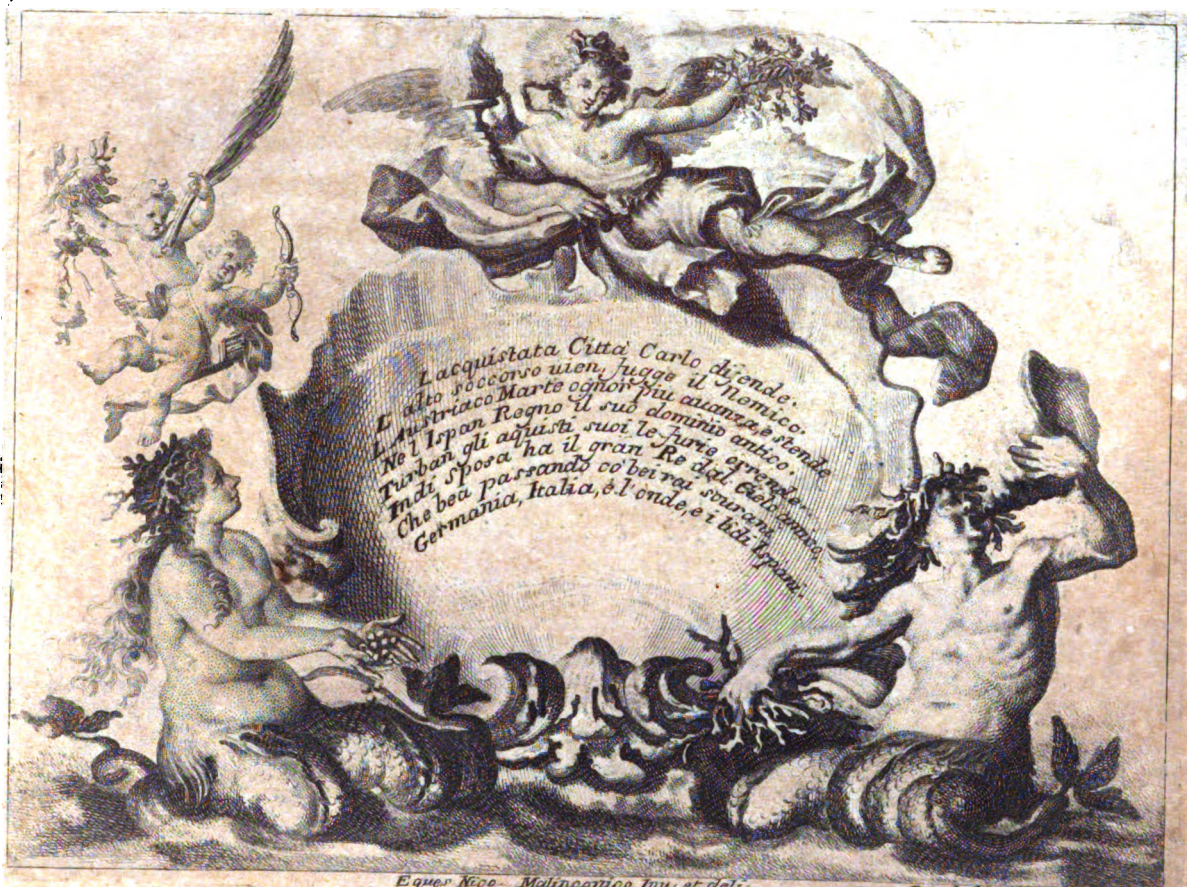 L'acquistata Città Carlo difende:
L'alto soccorso uien, fugge il Nemico.
L'Austriaco Marte ognor piu auanza, e stende
Ne l'Ispan Regno il suo dominio antico.
Turban gli aquisti suoi le furie orrende,
Indi sposa ha il gran Re dal Cielo amico,
Che bea passando co' bei rai sourani
Germania, Italia, e l'onde, e i lidi Ispani.
Eques Nico. Malinconico Inu. et deli.